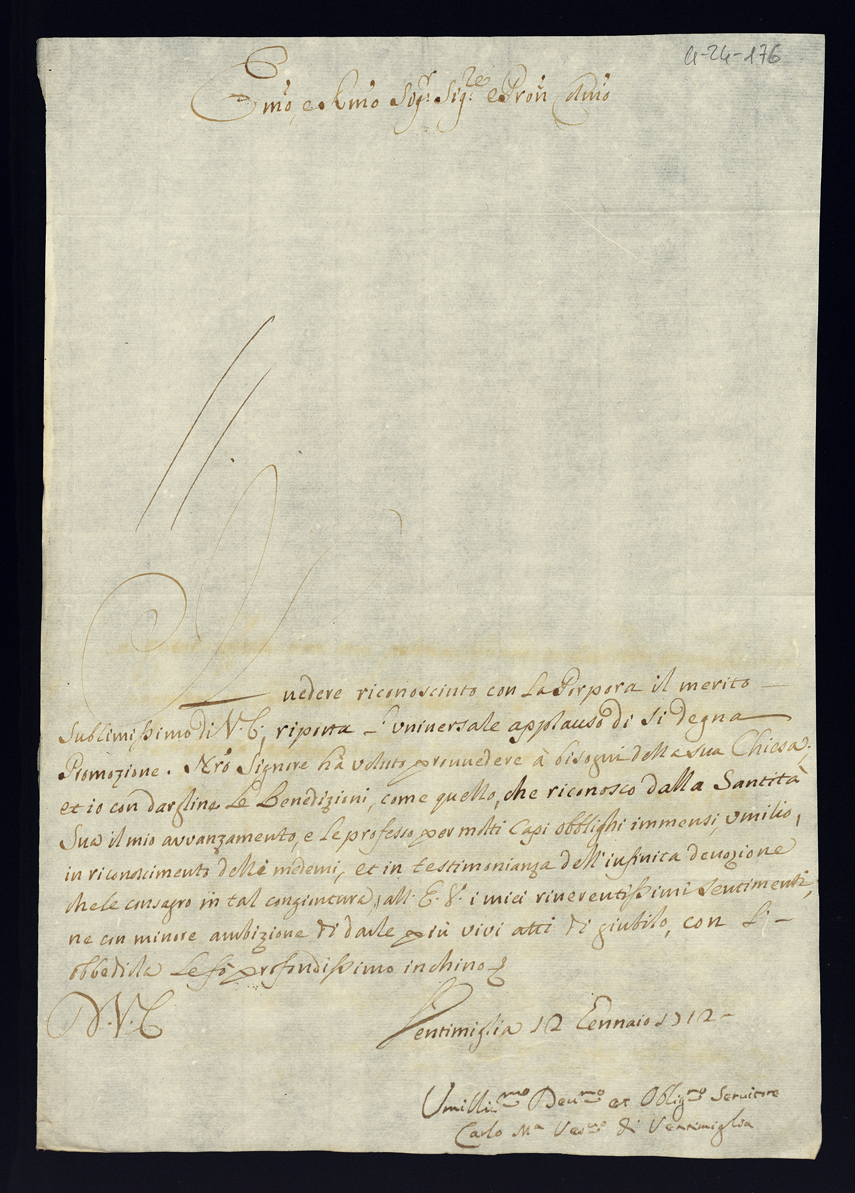 4-24-176
Em̃o, e Rm̃o Sig.r Sig.re e Pron Colm̃o
Il vedere riconosciuto con La Porpora il merito
Sublimissimo di V. E., riporta L'universale applauso di sì degna
Promozione. Nr̃o Signore hà voluto provvedere à bisogni della sua Chiesa;
et io con dargline Le Benedizioni, come quello, che riconosco dalla Santità
Sua il mio avvanzamento, e Le professo per molti Capi obblighi immensi, umilio,
in riconoscimento delli medemi, et in testimonianza dell'infinita devozione
che le consagro in tal congiontura, all' E. V. i miei riverentissimi Sentimenti,
ne con minore ambizione di darle più vivi atti di giubilo, con
obbedirla Le fò profondissimo inchino
D. V. E.
Ventimiglia 12 Gennaio 1712
Umilliss.mo Deu.mo et Oblig.mo Servitore
Carlo M.a Vesc.vo di Ventimiglia